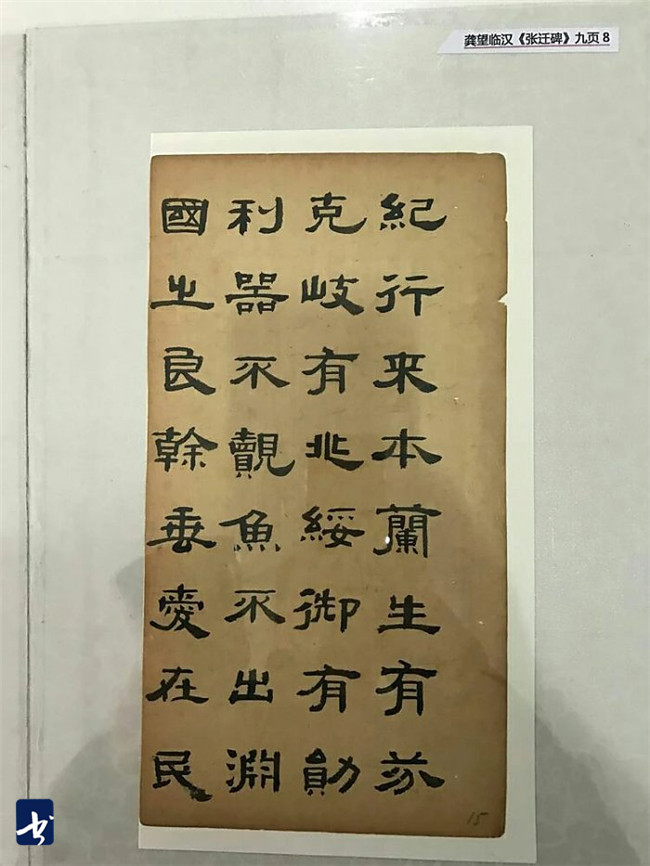 龚望临汉《张迁碑》九页8
紀行来本蘭生有芬
克岐有兆綏御有勛
利器不覿魚不出淵
國之良幹垂愛在民
15